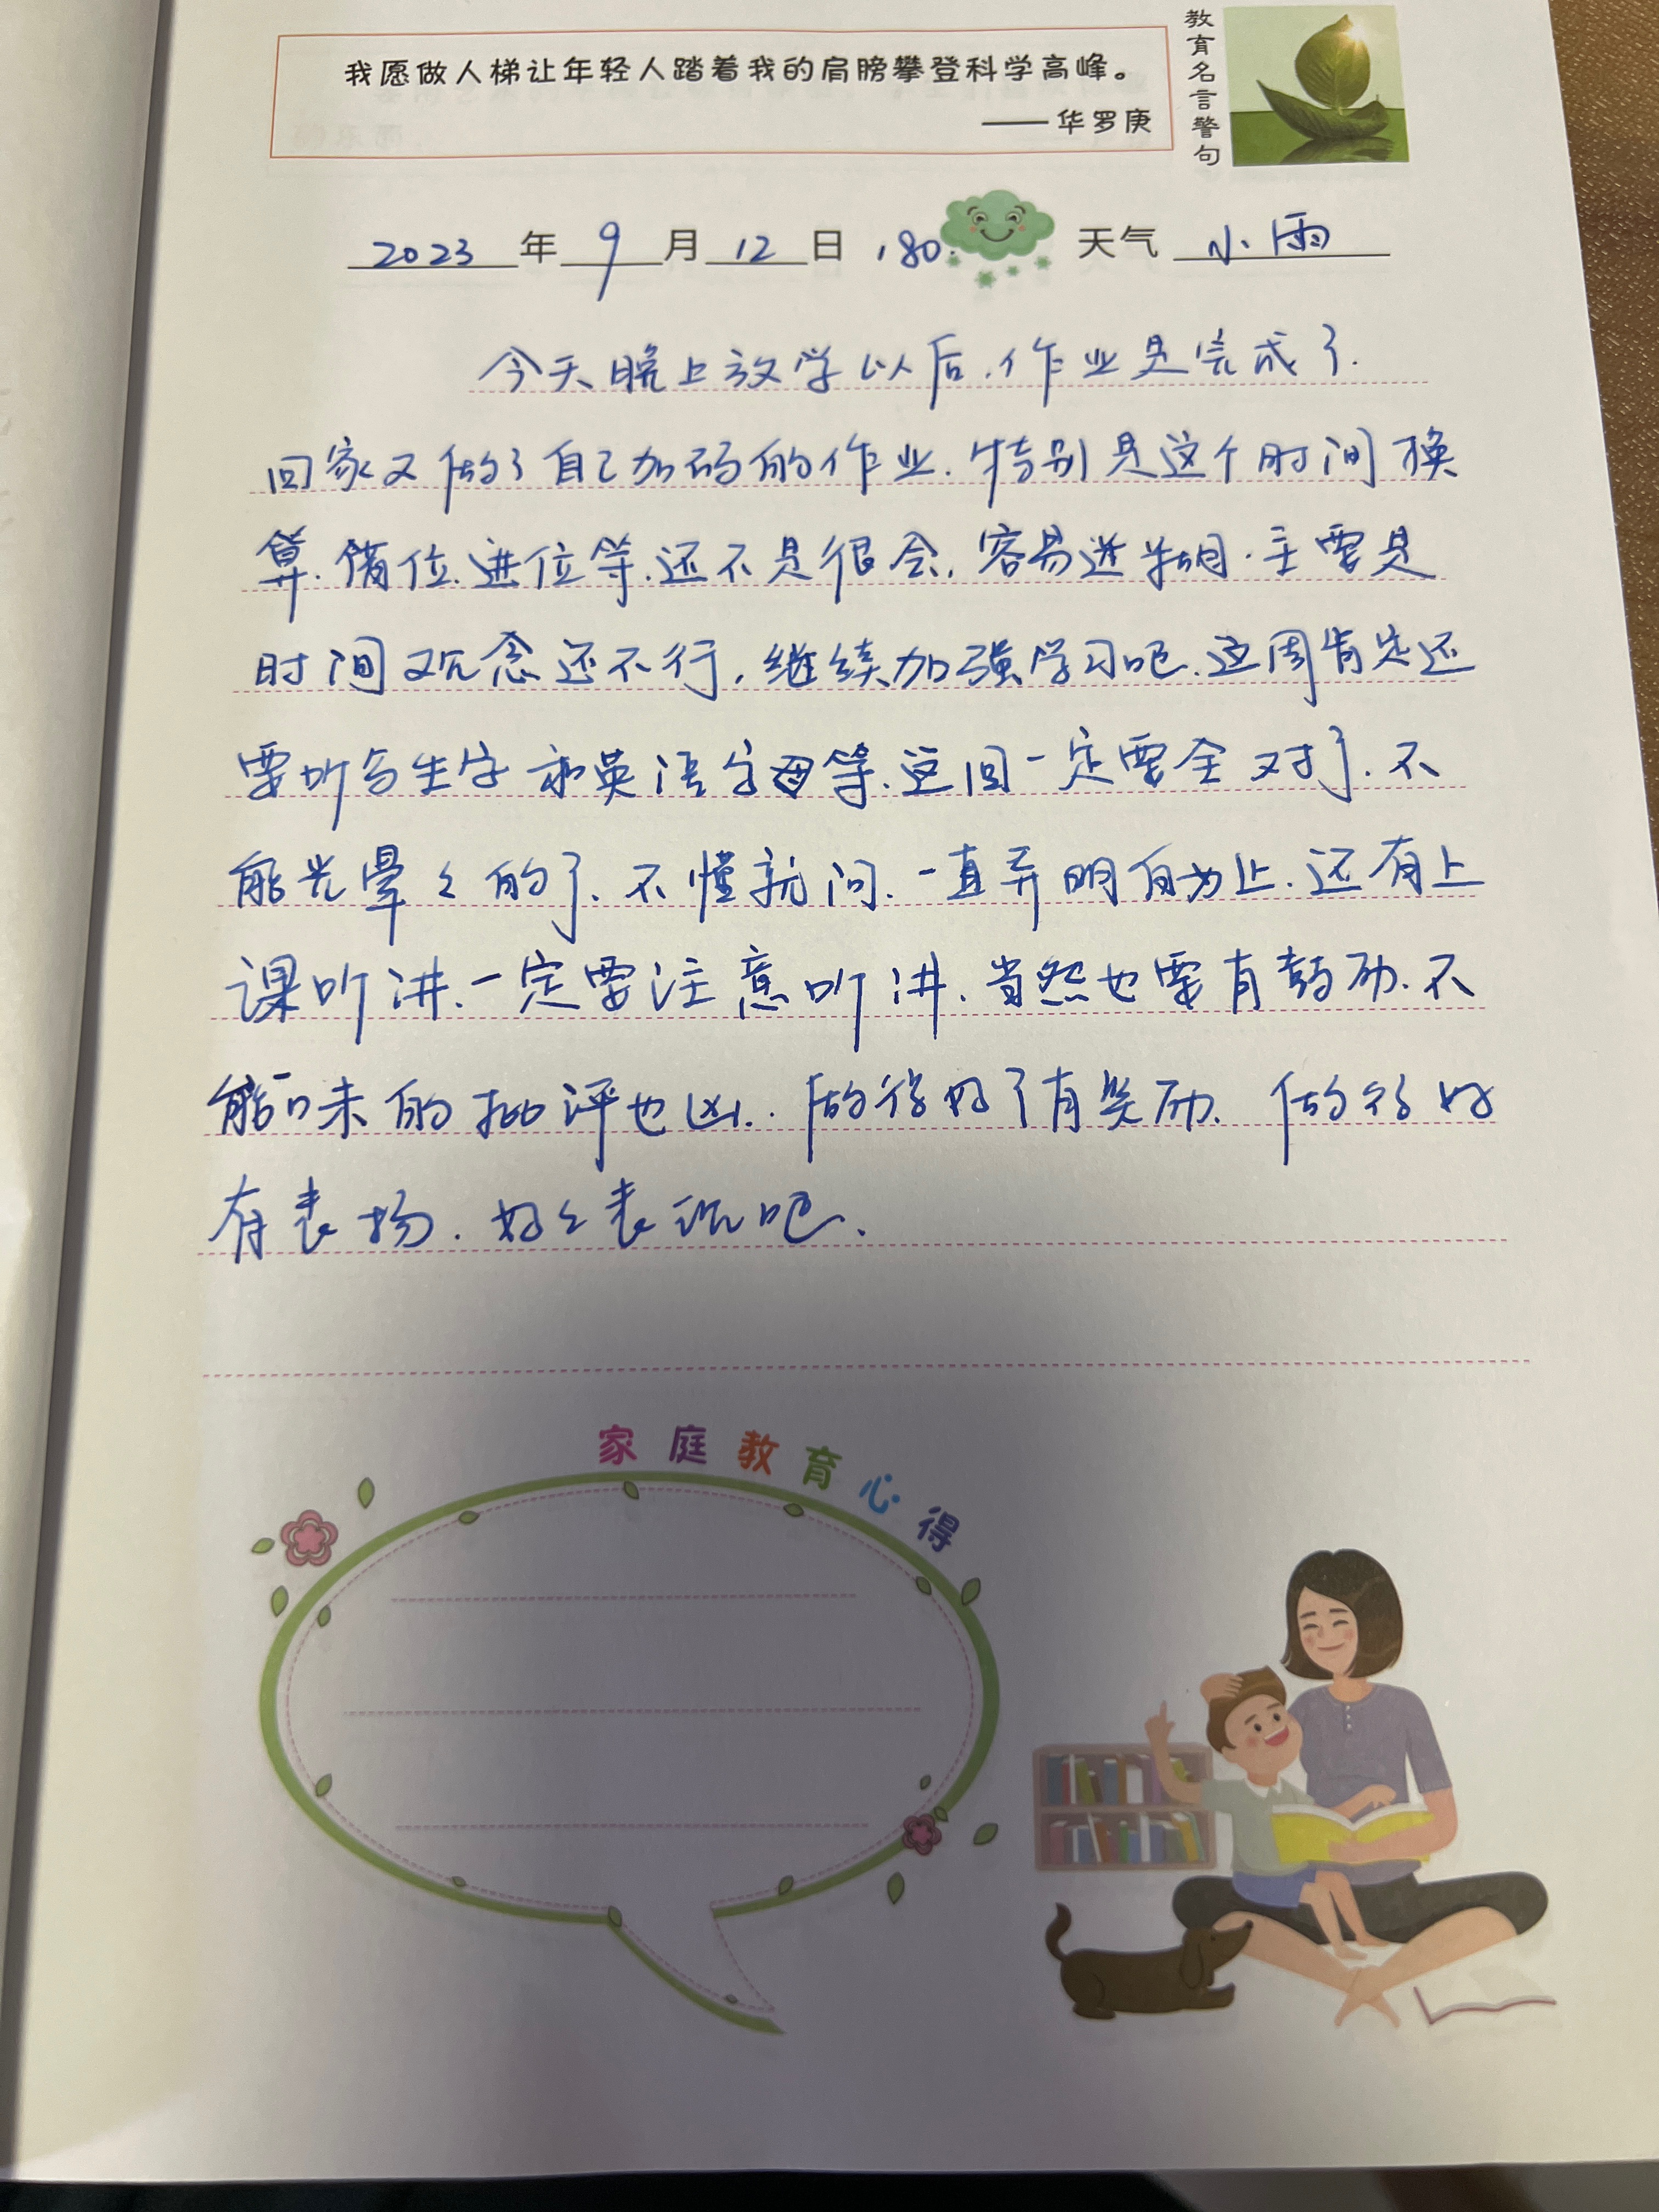 我愿做人梯让年轻人踏着我的肩膀攀登科学高峰。
——华罗庚
教育名言警句
2023年9月12日 180. 天气 小雨
今天晚上放学以后.作业是完成了.
回家又做了自己加码的作业.特别是这个时间换
算.借位.进位等.还不是很会.容易迷糊.主要是
时间观念还不行,继续加强学习吧.这周肯定还
要听写生字和英语字母等.这回一定要全对了.不
能光晕々的了.不懂就问.一直弄明白为止.还有上
课听讲.一定要注意听讲.当然也要有鼓励.不
能一味的批评也凶..做得好了有奖励.做得好
有表扬.好々表现吧.
家庭教育心得